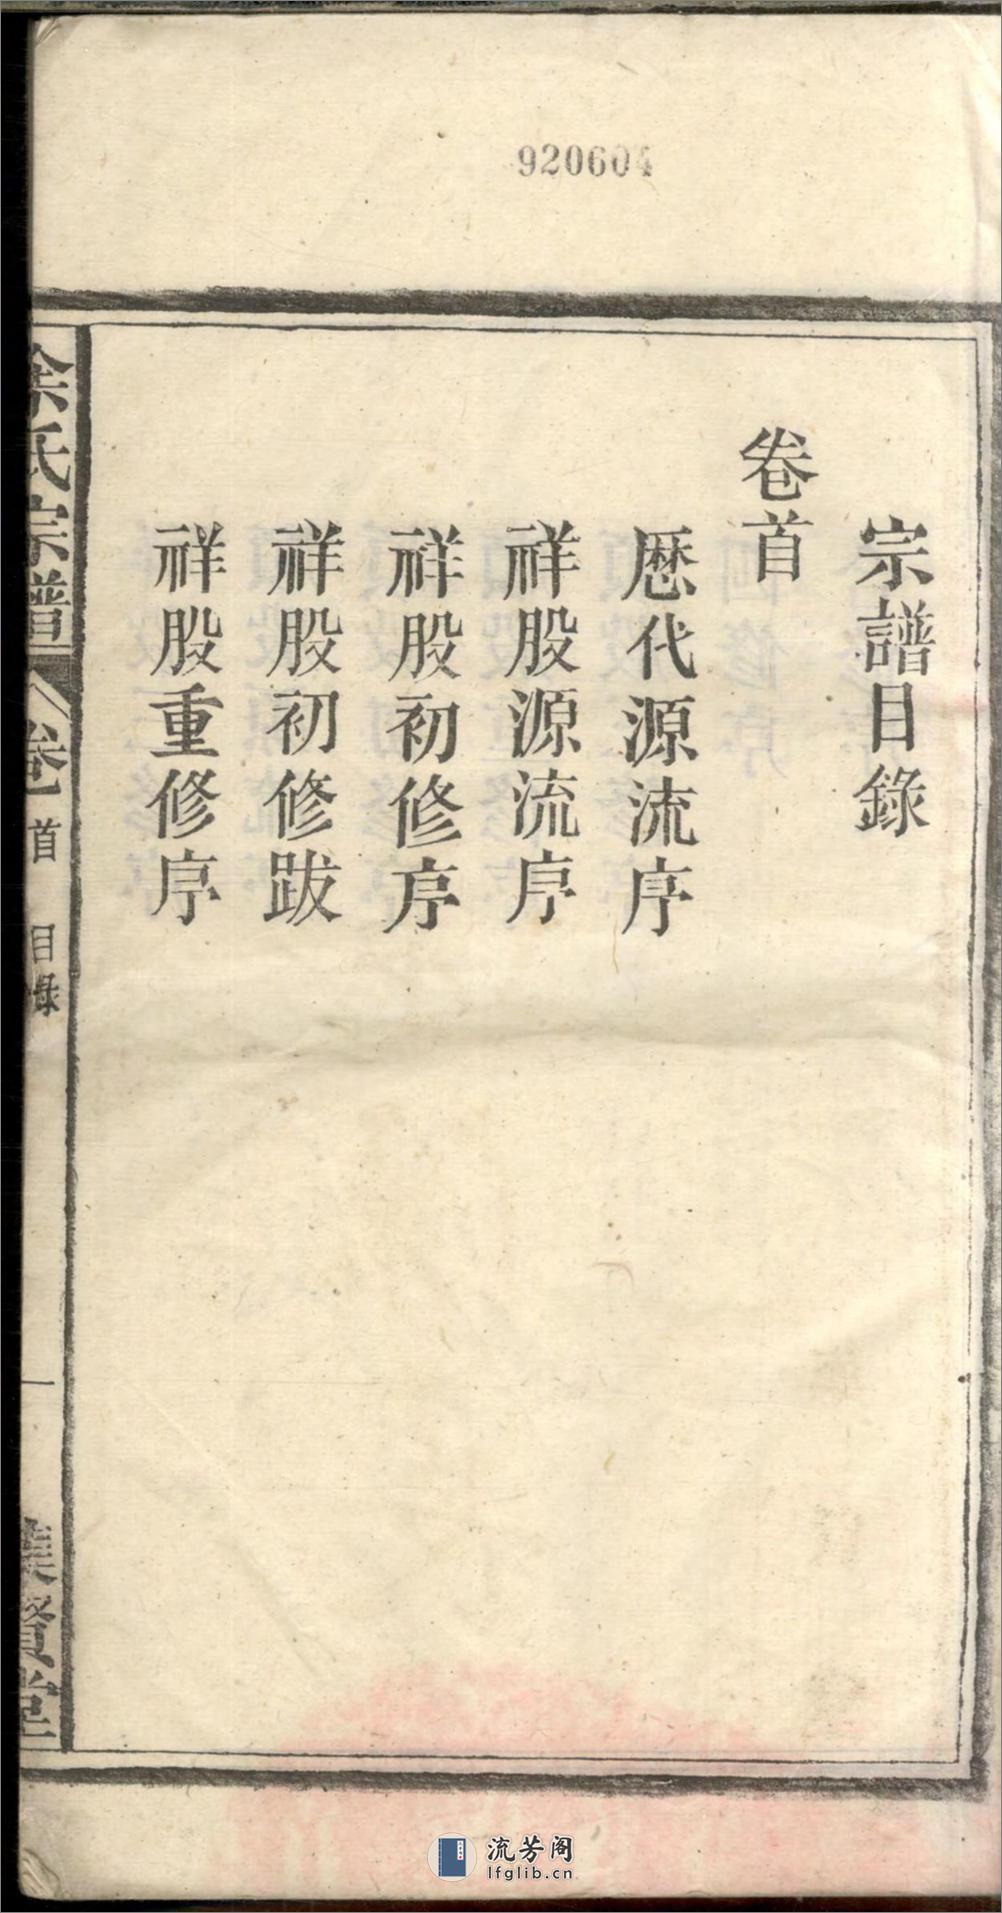 920604
宗譜目錄
卷首
厯代源流序
祥股源流序
祥股初修序
祥股初修跋
祥股重修序
氏宗譜
卷首 目錄
一
流芳阁
lfglib.cn